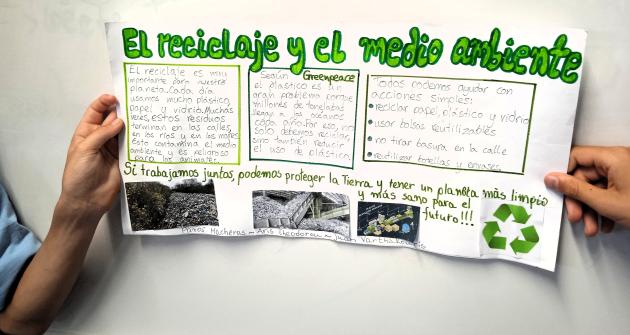 El reciclaje y el medio ambiente
El reciclaje es muy
importante para nuestro
planeta. Cada día
usamos mucho plástico,
papel y vidrio. Muchas
veces, estos residuos
terminan en las calles,
en los ríos y en los mares.
Esto contamina el medio
ambiente y es peligroso
para los animales.
Según Greenpeace
el plástico es un
gran problema porque
millones de toneladas
llegan a los océanos
cada año. Por eso, no
solo debemos reciclar,
sino también reducir
el uso de plástico.
Todos podemos ayudar con
acciones simples:
• reciclar papel, plástico y vidrio
• usar bolsas reutilizables
• no tirar basura en la calle
• reutilizar botellas y envases
Si trabajamos juntos, podemos proteger la Tierra y tener un planeta más limpio
y más sano para el
futuro!!!
Macheras - Aris Theodorou -